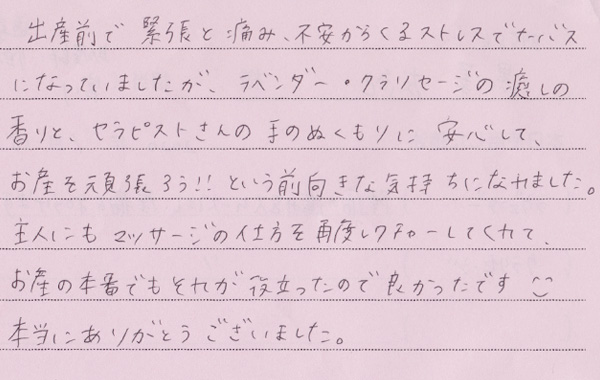 出産前で緊張と痛み、不安からくるストレスでナーバス
になっていましたが、ラベンダー・クラリセージの癒しの
香りと、セラピストさんの手のぬくもりに安心して、
お産を頑張ろう!!という前向きな気持ちになれました。
主人にもマッサージの仕方を再度レクチャーしてくれて、
お産の本番でもそれが役立ったので良かったです
本当にありがとうございました。